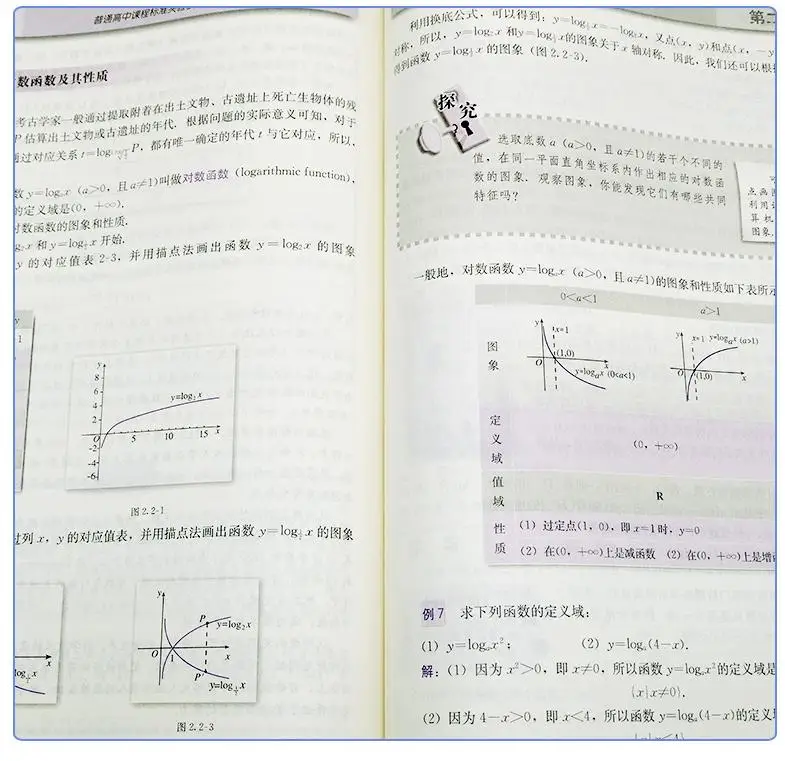 普通高中课程标准实验
数函数及其性质
考古学家一般通过提取附着在出土文物、古遗址上死亡生物体的残
P估算出土文物或古遗址的年代. 根据问题的实际意义可知, 对于
通过对应关系 P, 都有唯一确定的年代 t 与它对应, 所以,
数 y=logₐx (a>0, 且 a≠1)叫做对数函数 (logarithmic function),
的定义域是(0, +∞).
对数函数的图象和性质.
g₂x 和 y=log_{1/2} x 开始.
y 的对应值表 2-3, 并用描点法画出函数 y=log₂x 的图象
y
1
y
8
6
4
2
O
-2
-4
-6
5 10 15 x
y=log₂ x
图 2.2-1
过列 x, y 的对应值表, 并用描点法画出函数 y=log_{1/2} x 的图象
x
log_{1/2} x
y
P
y=log₂x
O 1 x
P′
y=log_{1/2} x
图 2.2-3
第二
利用换底公式, 可以得到: y=log_{1/2} x=-log₂x, 又点(x, y)和点(x, -y
对称, 所以, y=log₂x 和 y=log_{1/2} x的图象关于 x 轴对称. 因此, 我们还可以根据
得到函数 y=log_{1/2} x 的图象 (图 2.2-3).
探究
?
选取底数 a (a>0, 且 a≠1)的若干个不同的
值, 在同一平面直角坐标系内作出相应的对数函
数的图象. 观察图象, 你能发现它们有哪些共同
特征吗?
点画图
利用计
算机
图象.
一般地, 对数函数 y=logₐx (a>0, 且 a≠1)的图象和性质如下表所示
0<a<1 a>1
图象
y
x=1
(1,0)
O x
y=logₐx (0<a<1)
y
x=1 y=logₐx (a>1)
O (1,0) x
定义域
(0, +∞)
值域
R
性质
(1) 过定点(1, 0), 即 x=1时, y=0
(2) 在(0, +∞)上是减函数 (2) 在(0, +∞)上是增函
例 7 求下列函数的定义域:
(1) y=logₐx²; (2) y=logₐ(4-x).
解: (1) 因为 x²>0, 即 x≠0, 所以函数 y=logₐx²的定义域是
{x|x≠0}.
(2) 因为 4-x>0, 即 x<4, 所以函数 y=logₐ(4-x)的定义